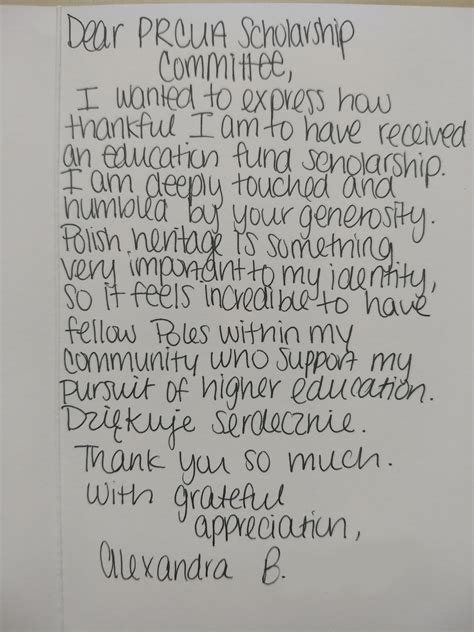 Dear PRCUA Scholarship
Committee,
I wanted to express how
thankful I am to have received
an education fund scholarship.
I am deeply touched and
humbled by your generosity.
Polish heritage is something
very important to my identity,
so it feels incredible to have
fellow Poles within my
community who support my
pursuit of higher education.
Dziękuje serdecznie.
Thank you so much.
With grateful
appreciation,
Alexandra B.